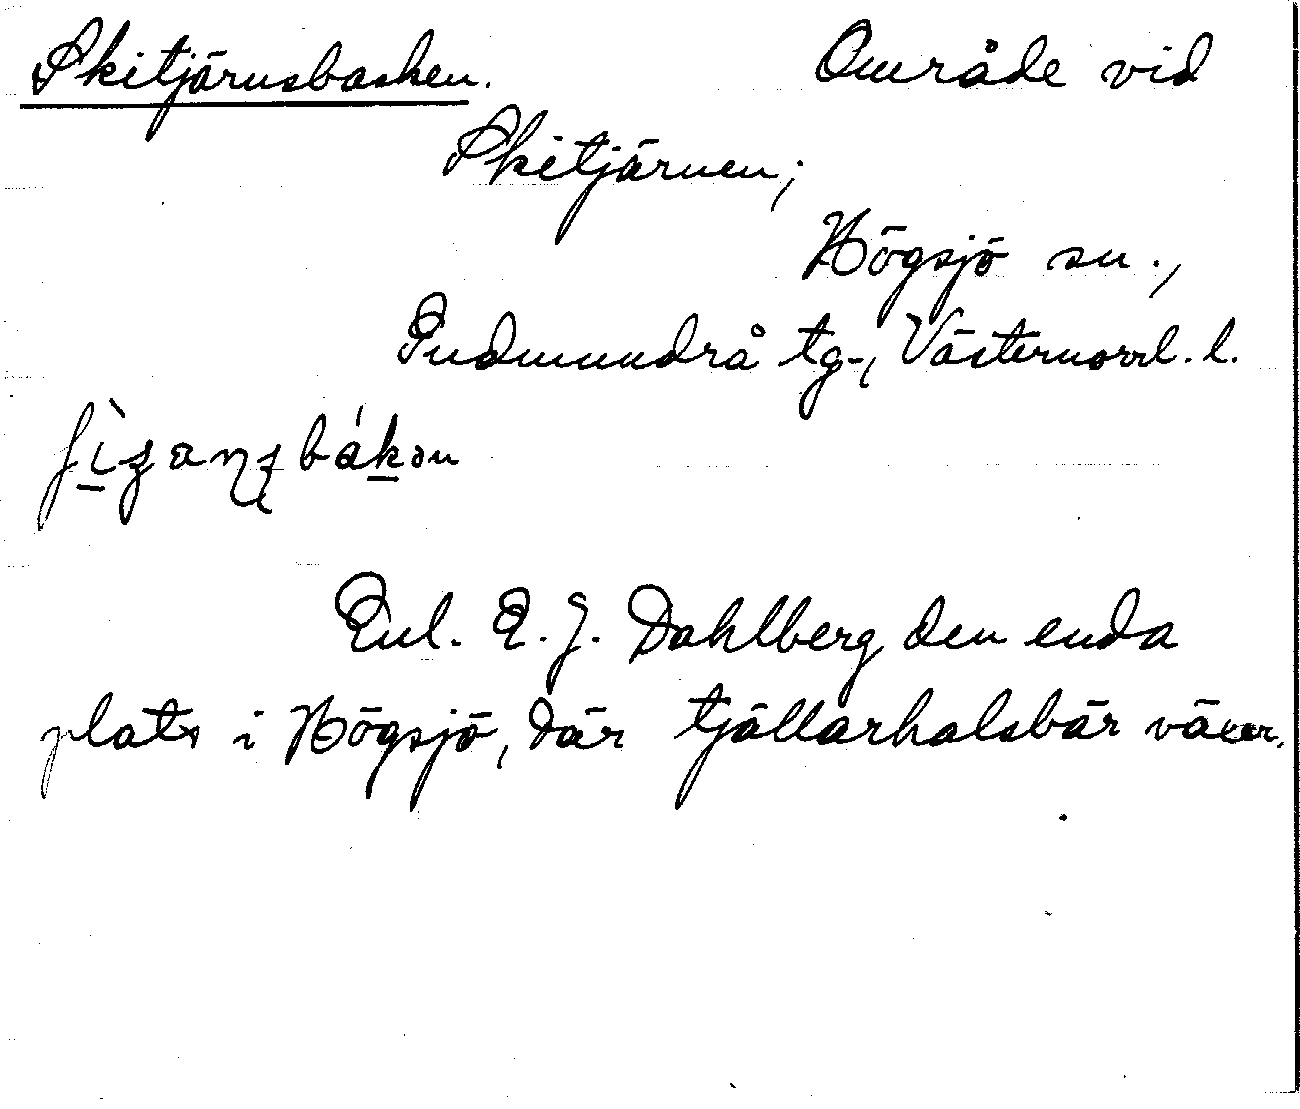 Skitjärnsbacken. Område vid
Skitjärnen;
Högsjö sn.,
Gudmundrå tg., Västernorrl. l.
Enl. E. J. Dahlberg den enda
plats i Högsjö, där tjällarhalsbär växer.